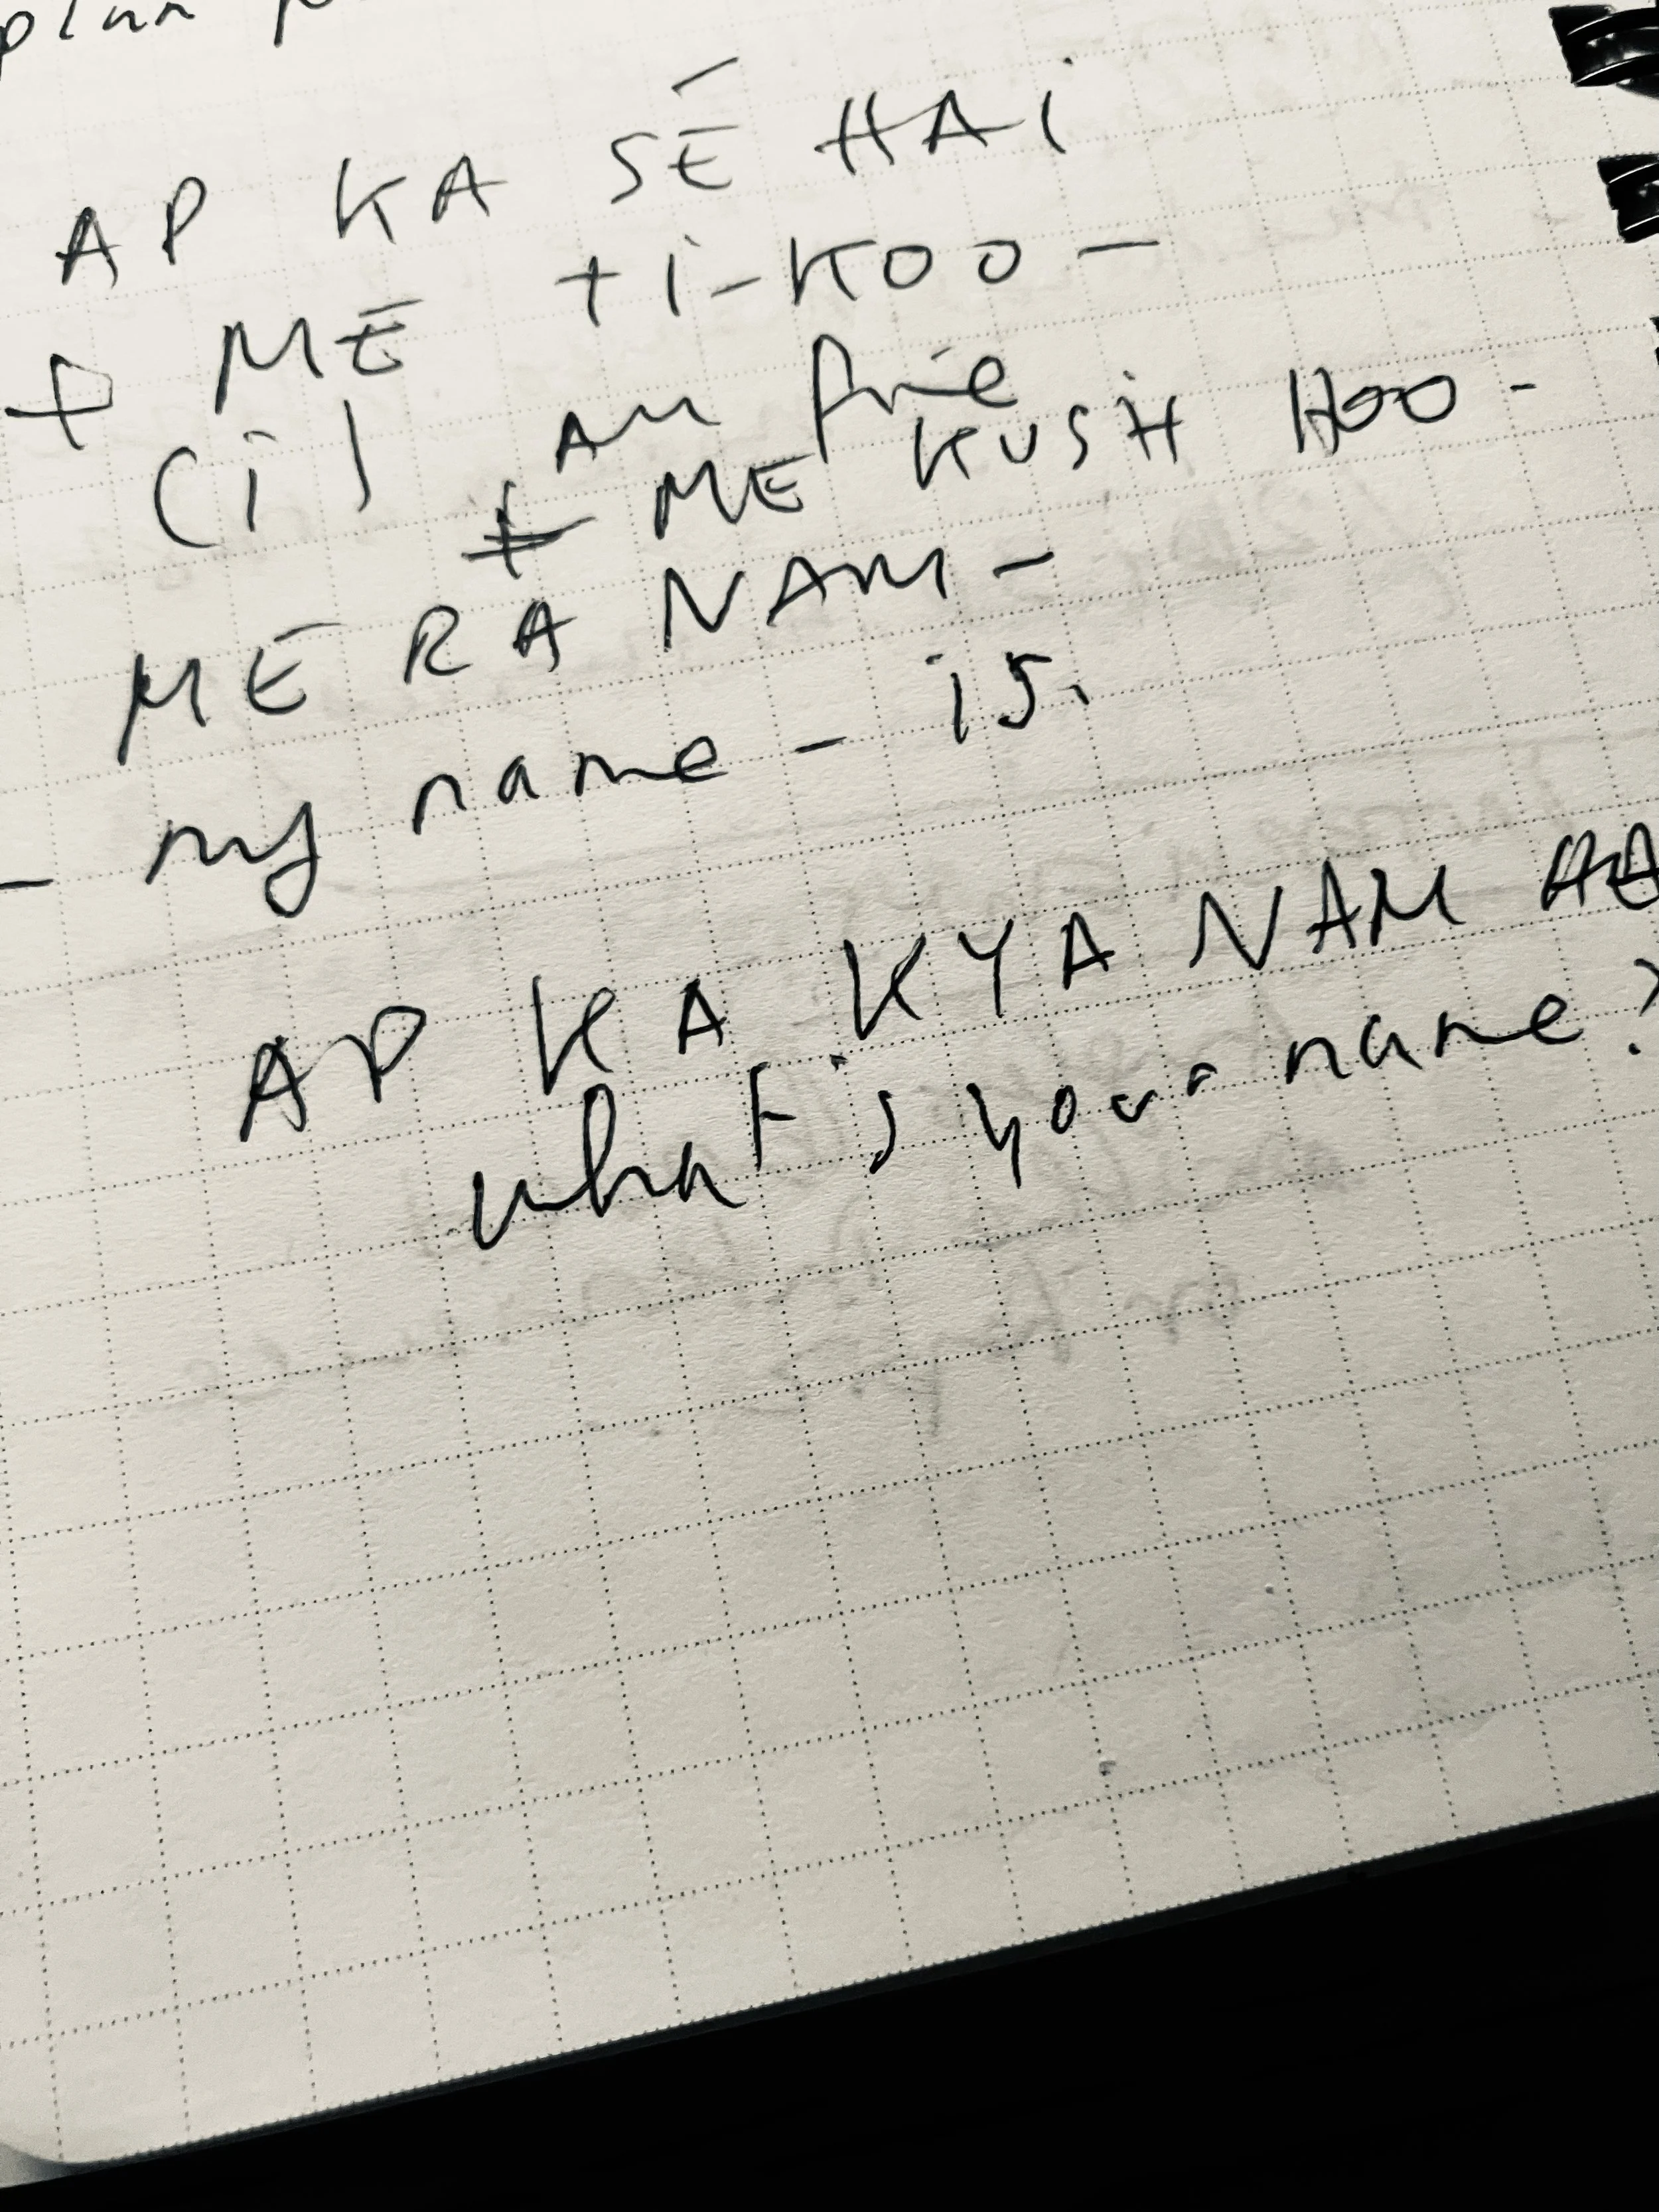 plan
AP KA SĒ HAI
+ MĒ ti-KOO -
(i) AM fine
+ ME KUSH HOO -
MĒ RA NAM -
- my name - is.
AP KA KYA NAM HA
what is your name?